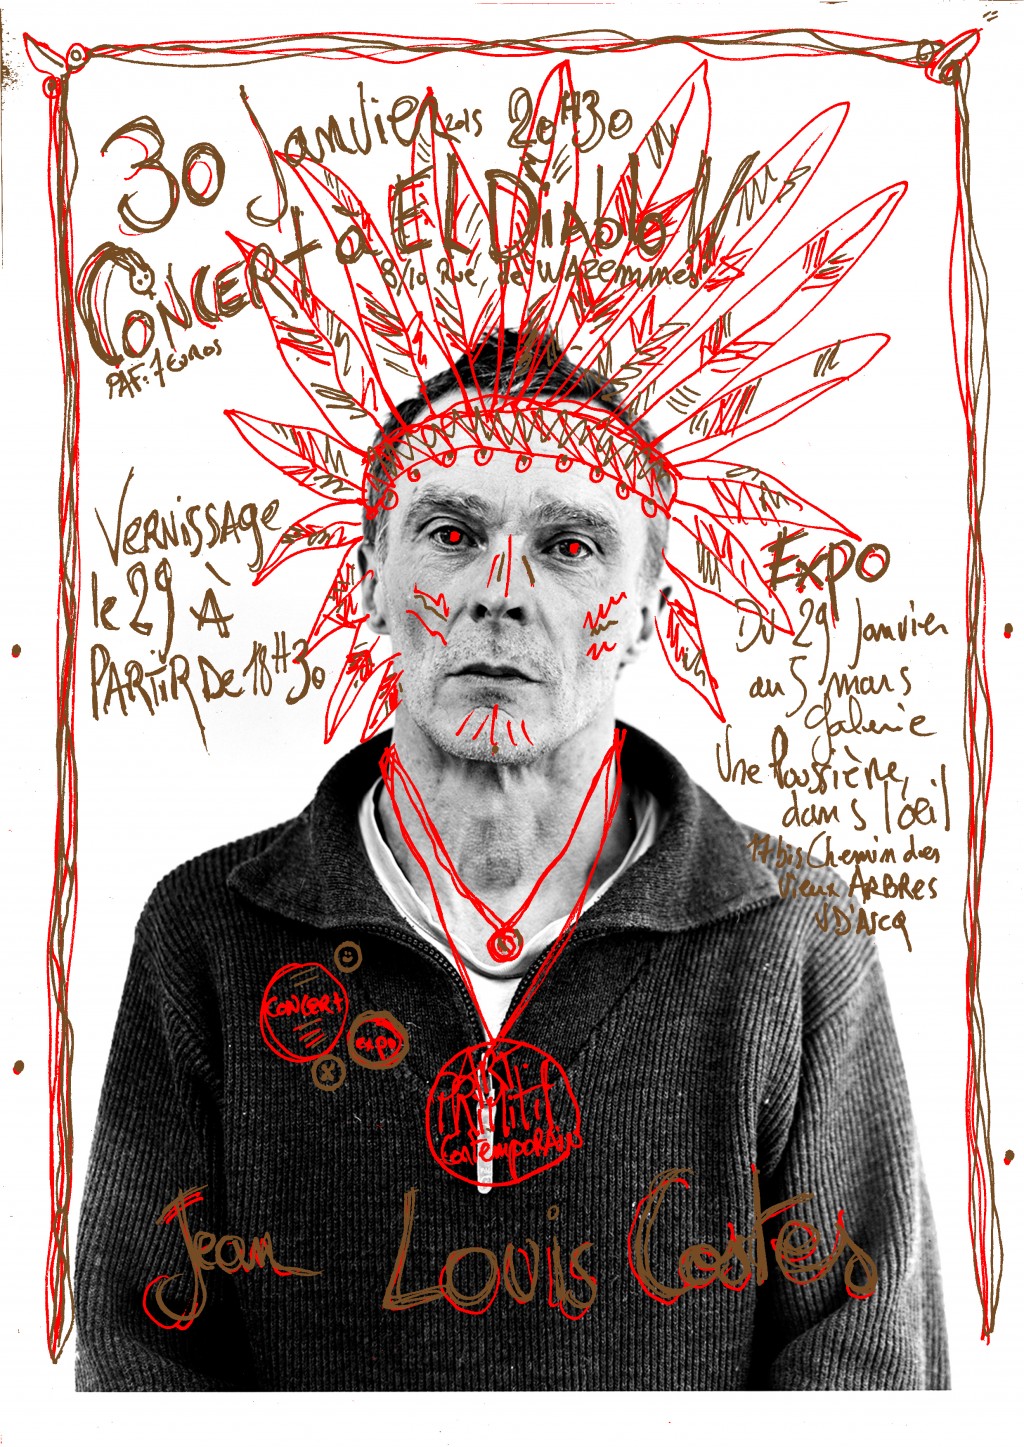 30 Janvier 2015 20H30
Concert à EL Diablo
8/10 Rue de Wazemmes
PAF: 7 euros
Vernissage
le 29 À
PARTIR De 18H30
Expo
Du 29 Janvier
au 5 mars
Galerie
Une Poussière
dans l'œil
17 bis Chemin des
Vieux ARBRES
VD'ASCQ
CONCERT
expo
ART
PRIMITIF
Contemporain
Jean Louis Costes